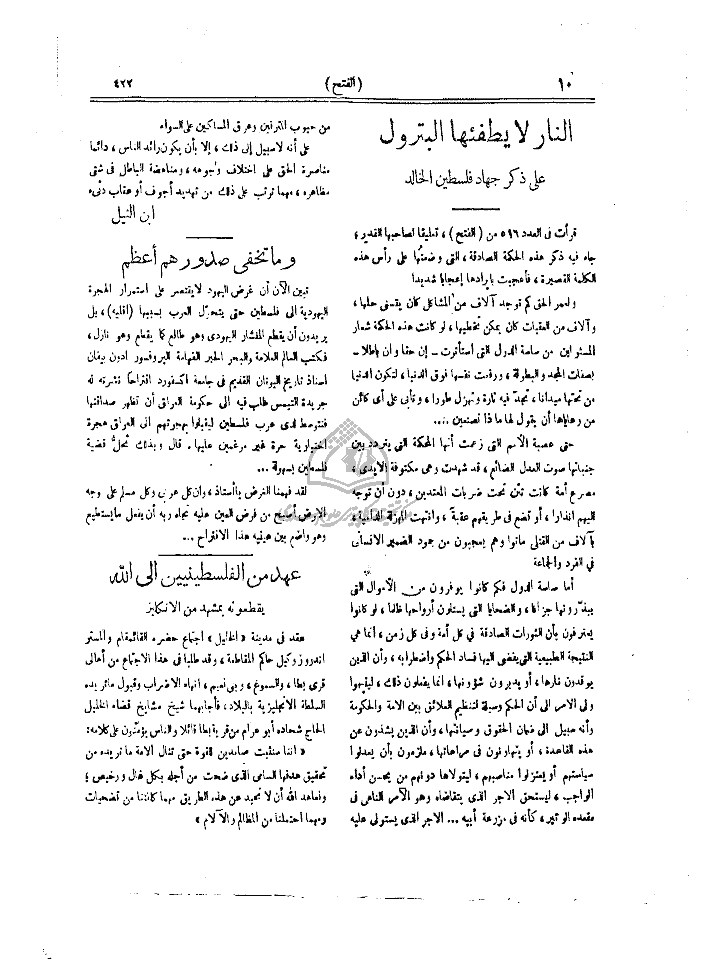 ١٠
(الفتح)
٤٢٢
النار لا يطفئها البترول
على ذكر جهاد فلسطين الخالد
قرأت فى العدد ٥١٦ من (الفتح) ، تعليقا لصاحبها القدير ؛
جاء فيه ذكر هذه الحكمة الصادقة ، التى وضعتها على رأس هذه
الكلمة القصيرة ، فأعجبت بايرادها إعجابا شديدا
ولعمر الحق كم توجد آلاف من المشاكل كان يقتضى حلها ،
وآلاف من العقبات كان يمكن تخطيها ، لو كانت هذه الحكمة شعار
المسئولين من ساسة الدول التى استأثرت ـ إن حقا وان باطلا ـ
بصفات المجد والبطولة ، ورفعت نفسها فوق الدنيا ، لتكون الدنيا
من تحتها ميدانا ، تجد فيه تارة وتهزل طورا ، وتأبى على أى كائن
من رعاياها أن يقول لها ما ذا تصنعين ...
حتى عصبة الأمم التى زعمت أنها المحكمة التى يتردد بين
جنباتها صوت العدل الضائع ، قد شهدت وهى مكتوفة الايدى ،
مصرع أمة كانت تئن تحت ضربات المعتدين ، دون أن توجه
اليهم انذارا ، أو تضع فى طريقهم عقبة ، وانتهت المهزلة الدامية ،
بآلاف من القتلى ماتوا وهم يعجبون من جمود الضمير الانسانى
فى الفرد والجماعة
أما ساسة الدول فكم كانوا يوفرون من الأموال التى
يبذرونها جزافا ، والضحايا التى يستلون أرواحها ظلما ، لو كانوا
يعترفون بأن الثورات الصادقة فى كل أمة وفى كل زمن ، انما هى
النتيجة الطبيعية التى يفضى اليها فساد الحكم واضطرابه ، وأن الذين
يوقدون نارها ، أو يديرون شؤونها ، انما يفعلون ذلك ، ليفهموا
ولى الامر الى أن الحكم وسيلة لتنظيم العلائق بين الامة والحكومة
وأنه سبيل الى ضمان الحقوق وصيانتها ، وأن الذين يشذون عن
هذه القاعدة ، أو يتهاونون فى مراعاتها ، ملزمون بأن يعدلوا
سياستهم أو يعتزلوا مناصبهم ، ليتولاها دونهم من يحسن أداء
الواجب ، ليستحق الاجر الذى يتقاضاه وهو الآمر الناهى فى
مقعده الوثير ، كأنه فى مزرعة أبيه ... الاجر الذى يستولى عليه
من جيوب المترفين وعرق المساكين على السواء
على أنه لا سبيل إلى ذلك ، إلا بأن يكون رائد الناس ، دائما
مناصرة الحق على اختلاف وجوهه ، ومناهضة الباطل فى شتى
مظاهره ، مهما ترتب على ذلك من تهديد أجوف أو عقاب دنىء
ابن النيل
وما تخفى صدورهم أعظم
تبين الآن أن غرض اليهود لا يقتصر على استمرار الهجرة
اليهودية الى فلسطين حتى يتحول العرب بسببها (اقلية) ، بل
يريدون أن يقطع المنشار اليهودى وهو طالع كما يقطع وهو نازل ،
فكتب العالم العلامة والبحر الحبر الفهامة البروفسور ادون بيفان
استاذ تاريخ اليونان القديم فى جامعة اكسفورد اقتراحا نشرته له
جريدة التيمس طلب فيه الى حكومة العراق أن تظهر صداقتها
فتتوسط لدى عرب فلسطين ليقبلوا بهجرتهم الى العراق هجرة
اختيارية حرة غير مرغمين عليها . قال وبذلك تحل قضية
فلسطين بسهولة ...
لقد فهمنا الغرض يا أستاذ ، وان كل عربى وكل مسلم على وجه
الارض أصبح من فرض العين عليه تجاه ربه أن يفعل ما يستطيع
وهو واضع بين عينيه هذا الاقتراح ...
عهد من الفلسطينيين الى الله
يقطعونه بمشهد من الانكليز
عقد فى مدينة « الخليل » اجتماع حضره القائمقام والمستر
اندروز وكيل حاكم المقاطعة ، وقد طلبا فى هذا الاجتماع من أهالى
قرى يطا ، والسموع ، وبنى نعيم ، انهاء الاضراب وقبول ما تريده
السلطة الانجليزية بالبلاد ، فأجابهما شيخ مشايخ قضاء الخليل
الحاج شحاده أبو هرام من قرية يطا قائلا والناس يؤمنون على كلامه :
« اننا سنثبت صامدين للقوة حتى تنال الامة ما تريده من
تحقيق هدفها السامى الذى ضحت من أجله بكل غال ورخيص ؛
ونعاهد الله أن لا نحيد عن هذه الطريق مهما كلفتنا من تضحيات
ومهما احتملنا من المظالم والآلام »